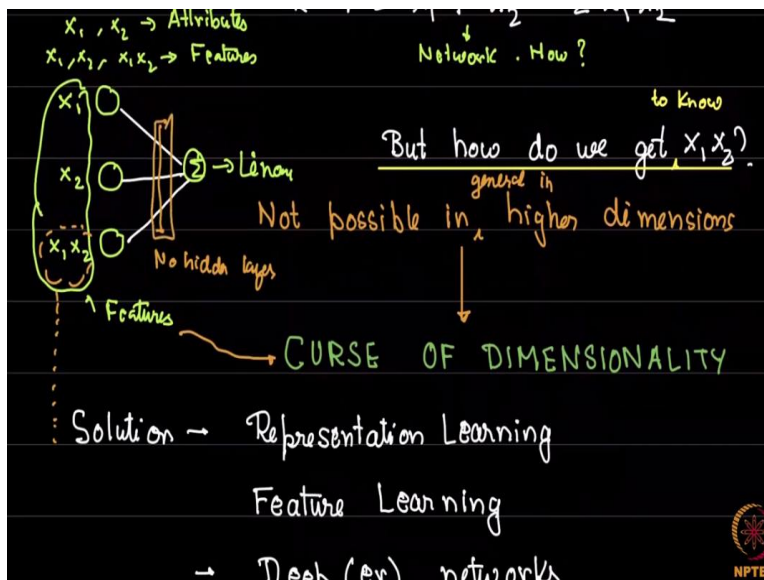 x₁, x₂ → Attributes
x₁, x₂, x₁x₂ → Features
Network. How?
x₁
x₂
x₁x₂
Σ → Linear
No hidden layer
Features
to know
But how do we get x₁x₂?
general in
Not possible in higher dimensions
CURSE OF DIMENSIONALITY
Solution → Representation Learning
Feature Learning
→ Deep(er) networks
NPTE